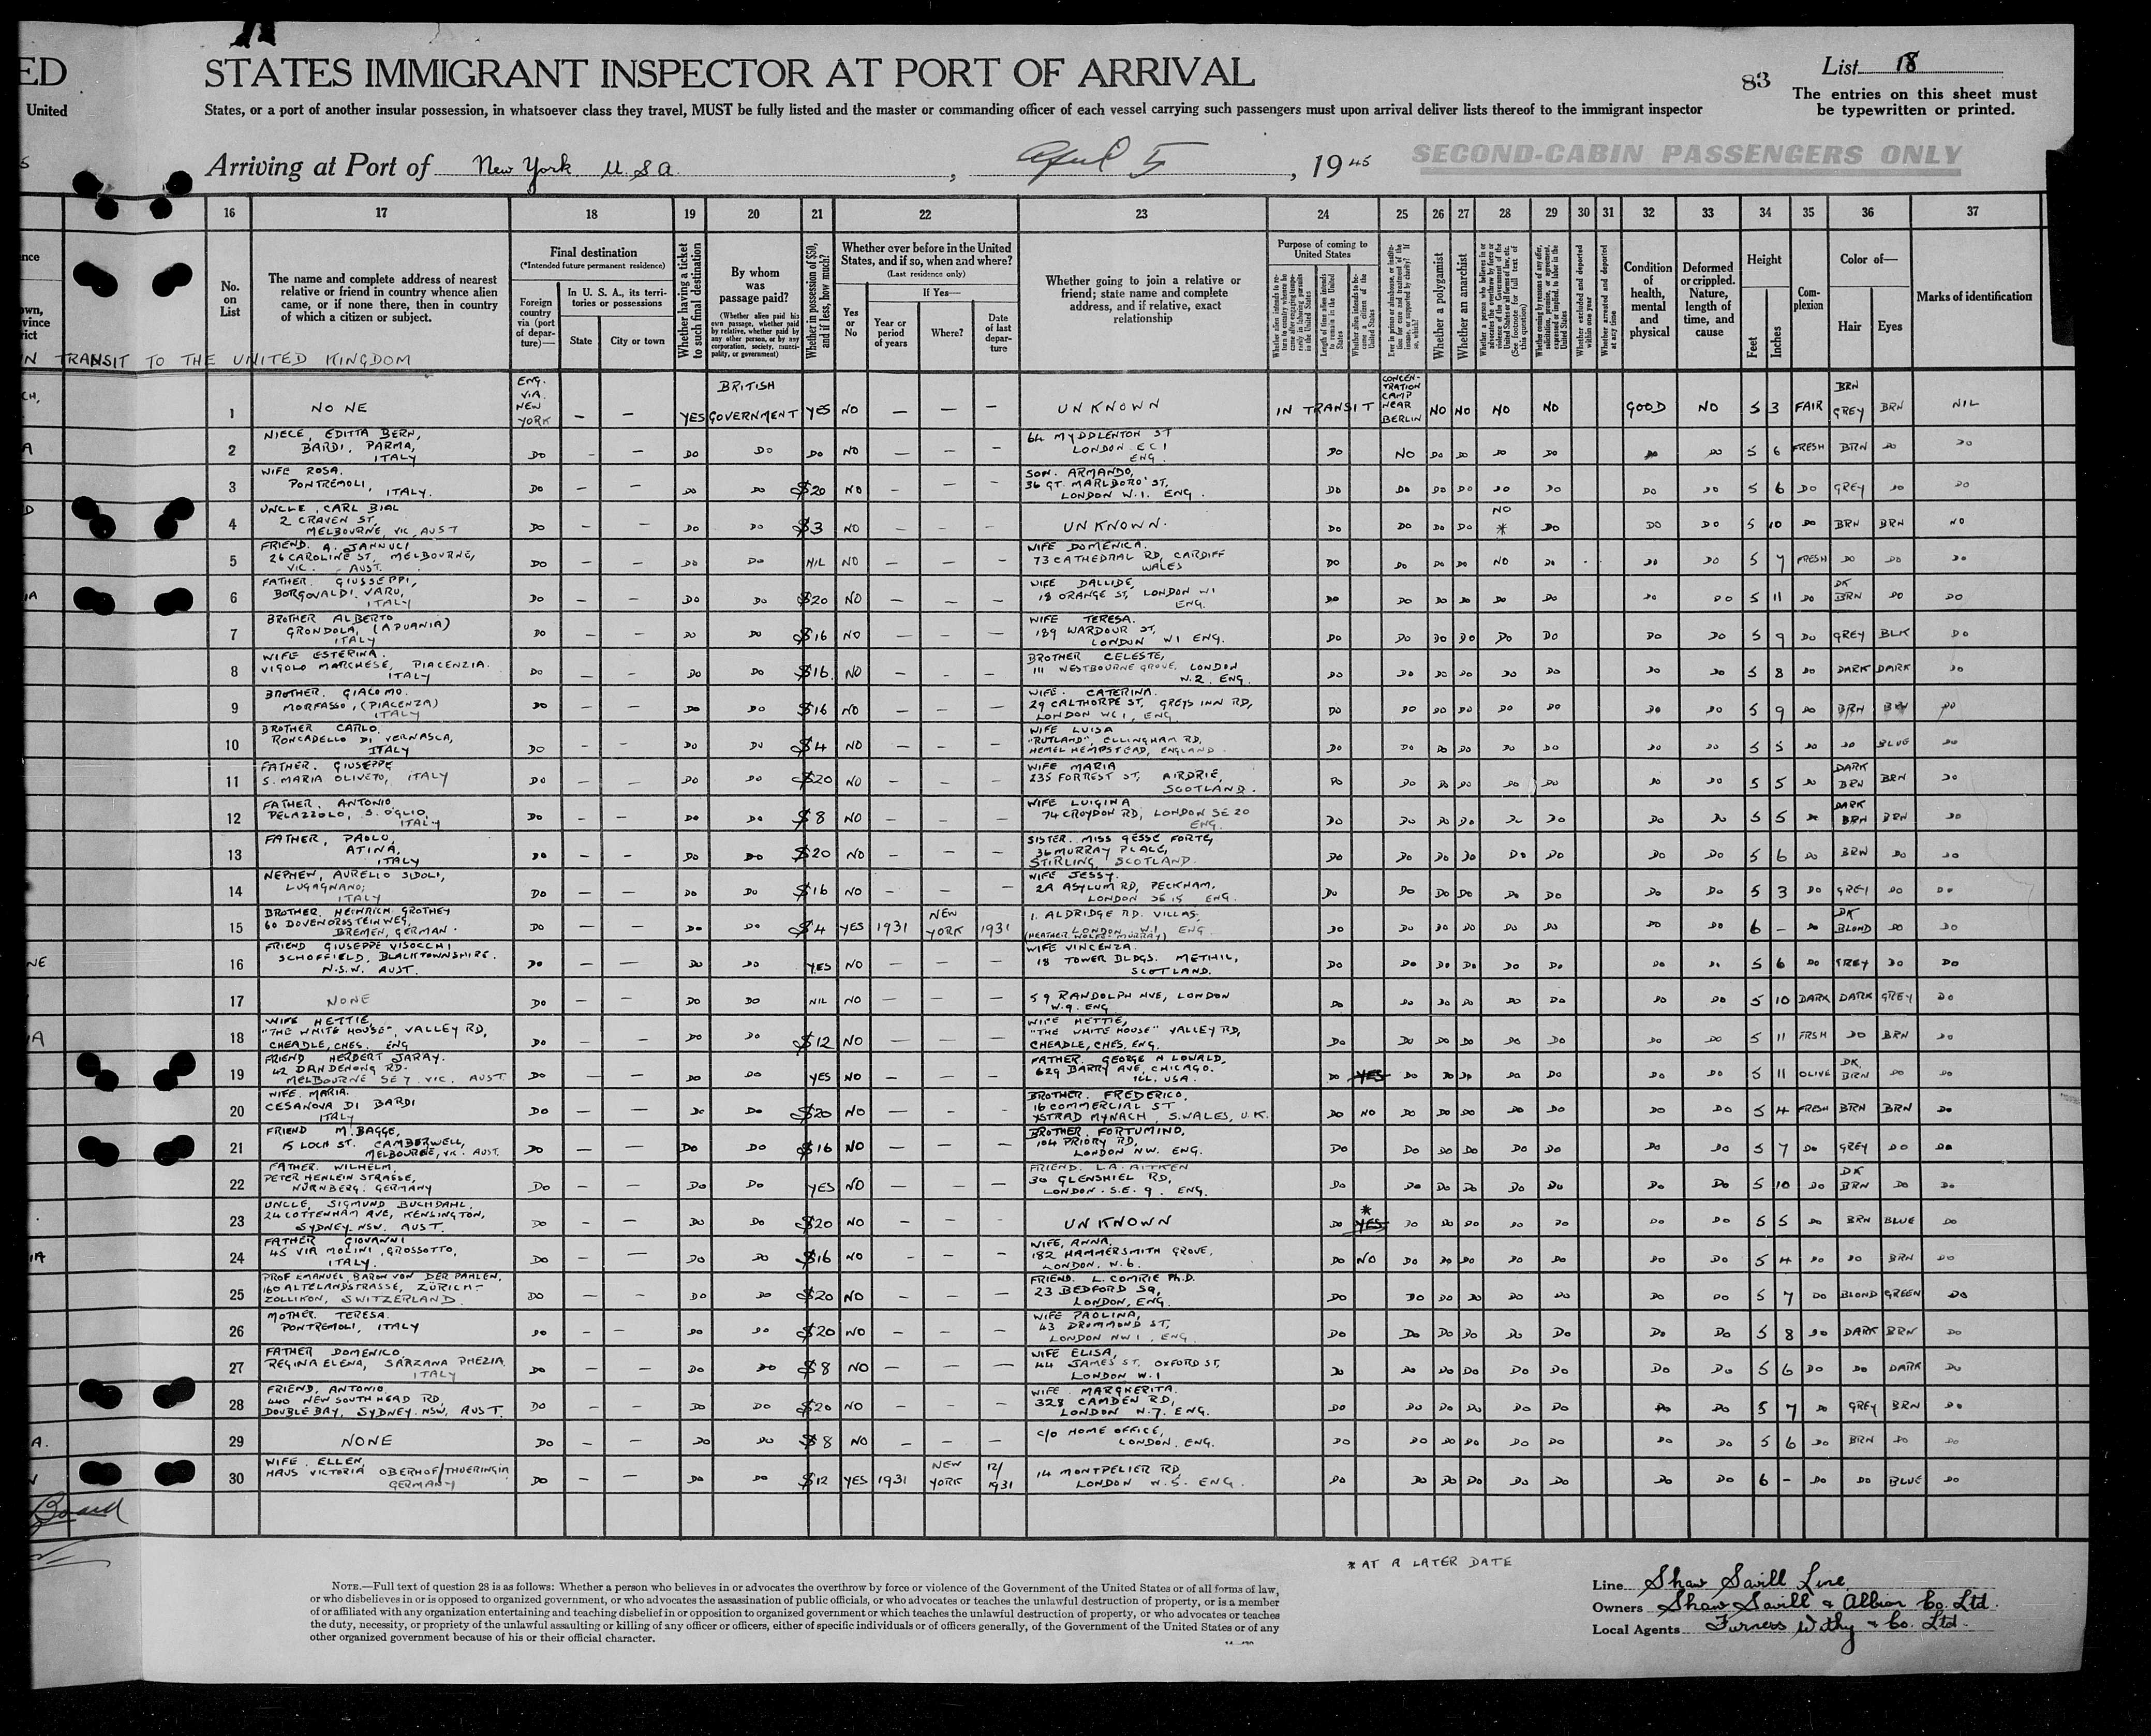 ED
United
STATES IMMIGRANT INSPECTOR AT PORT OF ARRIVAL
83
List 18
The entries on this sheet must
be typewritten or printed.
States, or a port of another insular possession, in whatsoever class they travel, MUST be fully listed and the master or commanding officer of each vessel carrying such passengers must upon arrival deliver lists thereof to the immigrant inspector
Arriving at Port of New York U.S.A. , April 5 , 1945
SECOND-CABIN PASSENGERS ONLY
16 17 18 19 20 21 22 23 24 25 26 27 28 29 30 31 32 33 34 35 36 37
No. on List
The name and complete address of nearest
relative or friend in country whence alien
came, or if none there, then in country
of which a citizen or subject.
Final destination
(*Intended future permanent residence)
Foreign country via (port of departure)—
In U. S. A., its territories or possessions
State
City or town
Whether having a ticket to such final destination
By whom was passage paid?
(Whether alien paid his own passage, whether paid by relative, whether paid by any other person, or by any corporation, society, municipality, or government)
Whether in possession of $50, and if less, how much?
Whether ever before in the United
States, and if so, when and where?
(Last residence only)
Yes or No
If Yes—
Year or period of years
Where?
Date of last departure
Whether going to join a relative or
friend; state name and complete
address, and if relative, exact
relationship
Purpose of coming to United States
Whether a polygamist
Whether an anarchist
Whether excluded and deported within one year
Whether arrested and deported at any time
Condition of health, mental and physical
Deformed or crippled. Nature, length of time, and cause
Height
Feet
Inches
Complexion
Color of—
Hair
Eyes
Marks of identification
IN TRANSIT TO THE UNITED KINGDOM
1 NONE ENG. VIA. NEW YORK — — YES BRITISH GOVERNMENT YES NO — — — UNKNOWN IN TRANSIT CONCENTRATION CAMP NEAR BERLIN NO NO NO NO GOOD NO 5 3 FAIR BRN GREY BRN NIL
2 NIECE, EDITTA BERN, BARDI, PARMA, ITALY DO - — DO DO DO NO — — - 64 MYDDLENTON ST LONDON EC1 ENG. DO NO DO DO DO DO DO DO 5 6 FRESH BRN DO DO
3 WIFE ROSA. PONTREMOLI, ITALY. DO — — DO DO $20 NO - — — SON. ARMANDO, 36 GT. MARLBORO' ST, LONDON W.1. ENG. DO DO DO DO DO DO DO DO 5 6 DO GREY DO DO
4 UNCLE, CARL BIAL 2 CRAVEN ST, MELBOURNE, VIC, AUST DO — — DO DO $3 NO - - - UNKNOWN. DO DO DO DO NO * DO DO DO 5 10 DO BRN BRN NO
5 FRIEND. A. JANNUCI 26 CAROLINE ST, MELBOURNE, VIC. AUST. DO — — DO DO NIL NO — — — WIFE DOMENICA. 73 CATHEDRAL RD, CARDIFF WALES DO DO DO DO NO DO DO DO 5 7 FRESH DO DO DO
6 FATHER. GIUSSEPPI, BORGOVALDI. VARU, ITALY DO — — DO DO $20 NO — — — WIFE DALLIDE, 18 ORANGE ST, LONDON W1 ENG. DO DO DO DO DO DO DO DO 5 11 DO DK BRN DO DO
7 BROTHER ALBERTO GRONDOLA, (APUANIA) ITALY DO — — DO DO $16 NO — — — WIFE TERESA. 189 WARDOUR ST, LONDON W1 ENG. DO DO DO DO DO DO DO DO 5 9 DO GREY BLK DO
8 WIFE ESTERINA. VIGOLO MARCHESE, PIACENZIA. ITALY DO — — DO DO $16 NO — - — BROTHER CELESTE, 111 WESTBOURNE GROVE. LONDON W.2. ENG. DO DO DO DO DO DO DO DO 5 8 DO DARK DARK DO
9 BROTHER. GIACOMO. MORFASSO, (PIACENZA) ITALY DO — — DO DO $16 NO — — — WIFE. CATERINA. 29 CALTHORPE ST, GREYS INN RD, LONDON WC1, ENG. DO DO DO DO DO DO DO DO 5 9 DO BRN BRN DO
10 BROTHER CARLO. RONCADELLO DI VERNASCA, ITALY DO - - DO DO $4 NO — — — WIFE LUISA "RUTLAND", ELLINGHAM RD, HEMEL HEMPSTEAD, ENGLAND. DO DO DO DO DO DO DO DO 5 5 DO DO BLUE DO
11 FATHER. GIUSEPPE S. MARIA OLIVETO, ITALY DO — — DO DO $20 NO — — — WIFE MARIA 235 FORREST ST, AIRDRIE, SCOTLAND. DO DO DO DO DO DO DO DO 5 5 DO DARK BRN BRN DO
12 FATHER. ANTONIO, PELAZZOLO, S. OGLIO, ITALY DO — — DO DO $8 NO — — — WIFE LUIGINA 74 CROYDON RD, LONDON SE 20 ENG. DO DO DO DO DO DO DO DO 5 5 DO DARK BRN BRN DO
13 FATHER, PAOLO, ATINA, ITALY DO — — DO DO $20 NO — — — SISTER. MISS GESSE FORTE, 36 MURRAY PLACE, STIRLING, SCOTLAND. DO DO DO DO DO DO DO DO 5 6 DO BRN DO DO
14 NEPHEW, AURELLO SIDOLI, LUGAGNANO; ITALY DO — — DO DO $16 NO — — — WIFE JESSY. 2A ASYLUM RD, PECKHAM. LONDON SE 15 ENG. DO DO DO DO DO DO DO DO 5 3 DO GREY DO DO
15 BROTHER, HEINRICH GROTHEY 60 DOVENORSTEINWEG, BREMEN, GERMAN. DO — — DO DO $4 YES 1931 NEW YORK 1931 1. ALDRIDGE RD. VILLAS, LONDON W.1 ENG (HEATHER WOLFE-MURRAY) DO DO DO DO DO DO DO DO 6 - DO DK BLOND DO DO
16 FRIEND GIUSEPPE VISOCCHI SCHOFFIELD, BLACKTOWNSHIRE. N.S.W. AUST. DO — — DO DO YES NO — — — WIFE VINCENZA. 18 TOWER BLDGS. METHIL, SCOTLAND. DO DO DO DO DO DO DO DO 5 6 DO GREY DO DO
17 NONE DO — — DO DO NIL NO — — — 59 RANDOLPH AVE, LONDON W.9. ENG DO DO DO DO DO DO DO DO 5 10 DARK DARK GREY DO
18 WIFE HETTIE, "THE WHITE HOUSE", VALLEY RD, CHEADLE, CHES. ENG DO — — DO DO $12 NO — — — WIFE HETTIE, "THE WHITE HOUSE" VALLEY RD, CHEADLE, CHES, ENG. DO DO DO DO DO DO DO DO 5 11 FRSH DO BRN DO
19 FRIEND HERBERT JARAY. 42 DANDENONG RD. MELBOURNE SE7. VIC. AUST DO — — DO DO YES NO — — — FATHER. GEORGE N LOWALD, 629 BARRY AVE, CHICAGO. ILL. USA. DO YES DO DO DO DO DO DO DO 5 11 OLIVE DK, BRN DO DO
20 WIFE. MARIA. CESANOVA DI BARDI ITALY DO — — DO DO $20 NO — — - BROTHER. FREDERICO, 16 COMMERCIAL ST YSTRAD MYNACH, S.WALES, U.K. DO NO DO DO DO DO DO DO DO 5 4 FRESH BRN BRN DO
21 FRIEND M. BAGGE, 15 LOCH ST. CAMBERWELL, MELBOURNE, VIC. AUST. DO — — DO DO $16 NO — — — BROTHER. FORTUMINO, 104 PRIORY RD, LONDON NW. ENG. DO DO DO DO DO DO DO DO 5 7 DO GREY DO DO
22 FATHER. WILHELM. PETER HENLEIN STRASSE, NÜRNBERG. GERMANY DO — — DO DO YES NO — — — FRIEND. L.A. AITKEN 30 GLENSHIEL RD, LONDON. S.E. 9. ENG. DO DO DO DO DO DO DO DO 5 10 DO DK BRN DO DO
23 UNCLE, SIGMUND BUCHDAHL. 24 COTTENHAM AVE, KENSINGTON, SYDNEY. NSW. AUST. DO — — DO DO $20 NO — — — UNKNOWN DO * YES DO DO DO DO DO DO DO 5 5 DO BRN BLUE DO
24 FATHER GIOVANNI 45 VIA MOLINI, GROSSOTTO, ITALY. DO — — DO DO $16 NO — — — WIFE, ANNA, 182 HAMMERSMITH GROVE, LONDON. W.6. DO NO DO DO DO DO DO DO DO 5 4 DO DO BRN DO
25 PROF EMANUEL, BARON VON DER PAHLEN, 160 ALTELANDSTRASSE, ZÜRICH- ZOLLIKON, SWITZERLAND. DO — — DO DO $20 NO — — — FRIEND. L. COMRIE Ph.D. 23 BEDFORD SQ, LONDON, ENG. DO DO DO DO DO DO DO DO 5 7 DO BLOND GREEN DO
26 MOTHER. TERESA. PONTREMOLI, ITALY DO — — DO DO $20 NO — — — WIFE PAOLINA, 43 DRUMMOND ST, LONDON NW1, ENG. DO DO DO DO DO DO DO DO 5 8 DO DARK BRN DO
27 FATHER DOMENICO. REGINA ELENA, SARZANA PHEZIA. ITALY DO — — DO DO $8 NO — — — WIFE ELISA, 44 JAMES ST. OXFORD ST, LONDON W.1 DO DO DO DO DO DO DO DO 5 6 DO DO DARK DO
28 FRIEND, ANTONIO. 440 NEW SOUTH HEAD RD, DOUBLE BAY, SYDNEY. NSW, AUST. DO — — DO DO $20 NO — — — WIFE. MARGHERITA. 328 CAMDEN RD, LONDON N.7. ENG. DO DO DO DO DO DO DO DO 5 7 DO GREY BRN DO
29 NONE DO — — DO DO $8 NO — — — C/O HOME OFFICE, LONDON. ENG. DO DO DO DO DO DO DO DO 5 6 DO BRN DO DO
30 WIFE. ELLEN, HAUS VICTORIA OBERHOF/THUERINGIA GERMANY DO — — DO DO $12 YES 1931 NEW YORK 12/1931 14 MONTPELIER RD, LONDON W.5. ENG. DO DO DO DO DO DO DO DO 6 - DO DO BLUE DO
Board
* AT A LATER DATE
NOTE.—Full text of question 28 is as follows: Whether a person who believes in or advocates the overthrow by force or violence of the Government of the United States or of all forms of law,
or who disbelieves in or is opposed to organized government, or who advocates the assassination of public officials, or who advocates or teaches the unlawful destruction of property, or is a member
of or affiliated with any organization entertaining and teaching disbelief in or opposition to organized government or which teaches the unlawful destruction of property, or who advocates or teaches
the duty, necessity, or propriety of the unlawful assaulting or killing of any officer or officers, either of specific individuals or of officers generally, of the Government of the United States or of any
other organized government because of his or their official character.
Line Shaw Savill Line
Owners Shaw Savill & Albion Co. Ltd.
Local Agents Furness Withy & Co. Ltd.